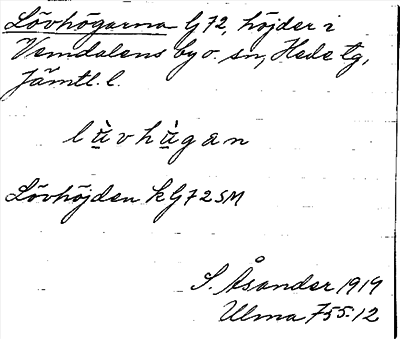 Lövhögarna G72, höjder i
Vemdalens by o. sn, Hede tg,
Jämtl. l.
lä̀vhä̀gan
Lövhöjden kG72SM
S. Åsander 1919
Ulma 755:12